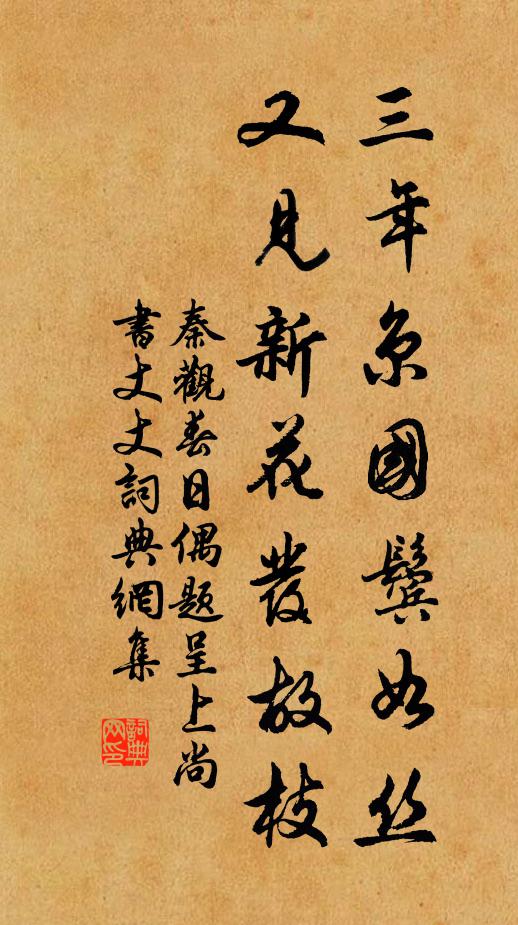 三年京國鬢如丝
又見新花發故枝
秦觀春日偶題呈上尚
書丈丈詞典網集
詞典
网印